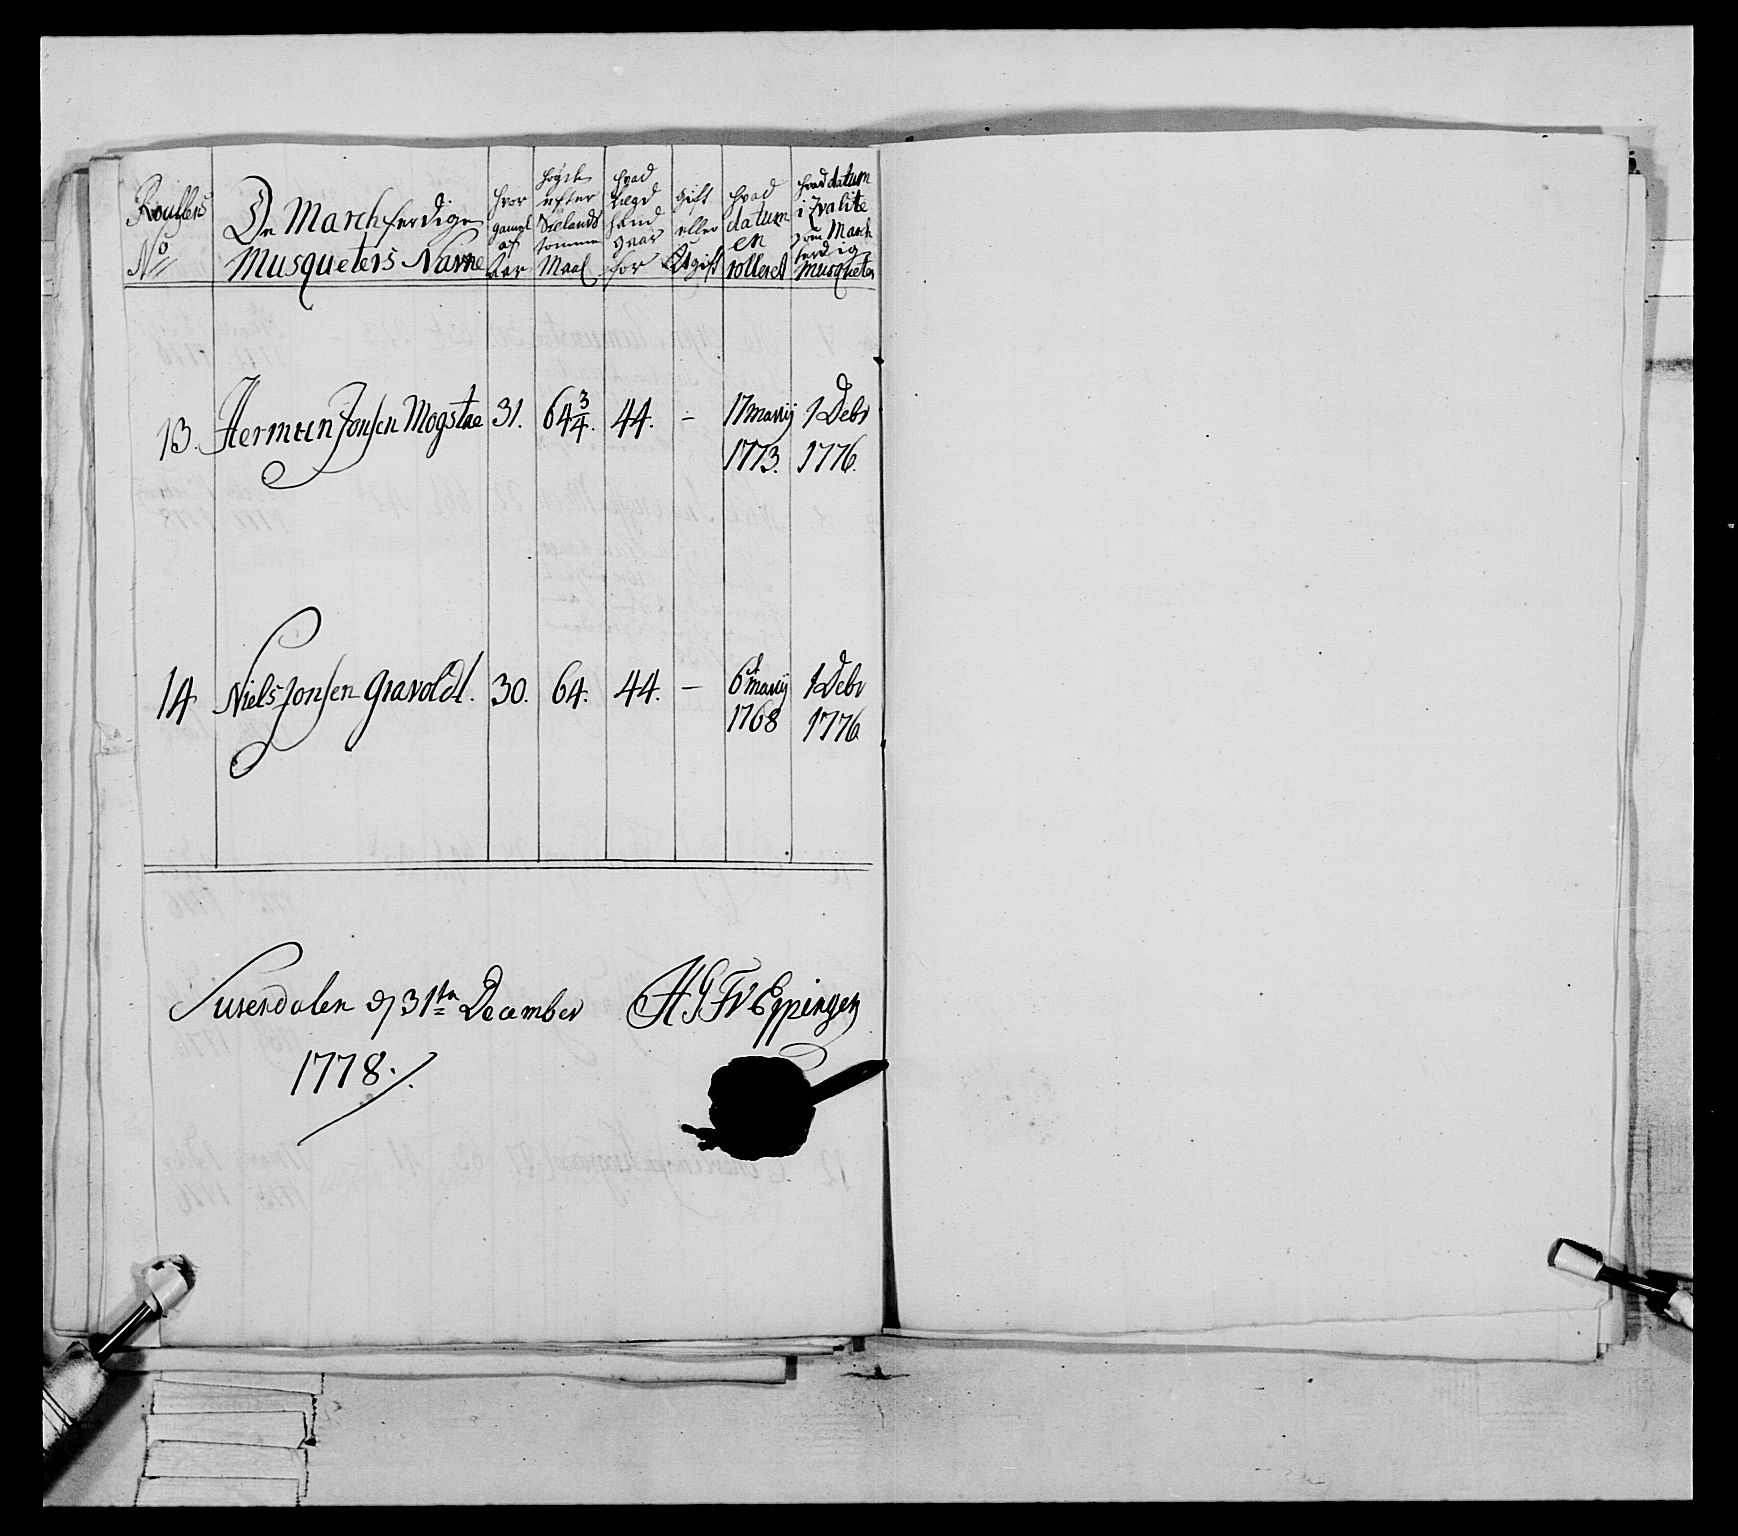 Roullens
No
De March ferdige
Musqueters Navne
hvor
gamel
af
Aar
høyde
efter
Siellands
tomme
Maal
hvad
Lægd
hand
svar
for
gift
eller
Ugift
hvad
datum
en
rolleret
hvad datum
i Qvalite
som March
ferdig
Musqueter
13. Hermen Jonsen Mogstae 31. 64 3/4. 44. - 17 Martij 1 Debr
1773. 1776.
14 Niels Jonsen Gravoldt. 30. 64. 44. - 6t Martij 1 Debr
1768 1776
Surendalen d 31ten December
1778.
HGFV Eppingen